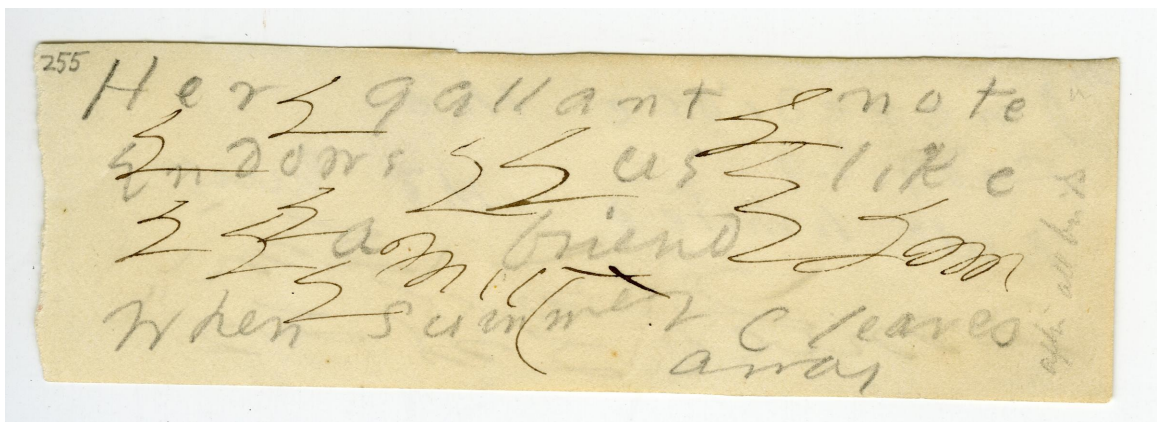 255
Her gallant note
Endows us like
a friend
When Summer Cleaves
away